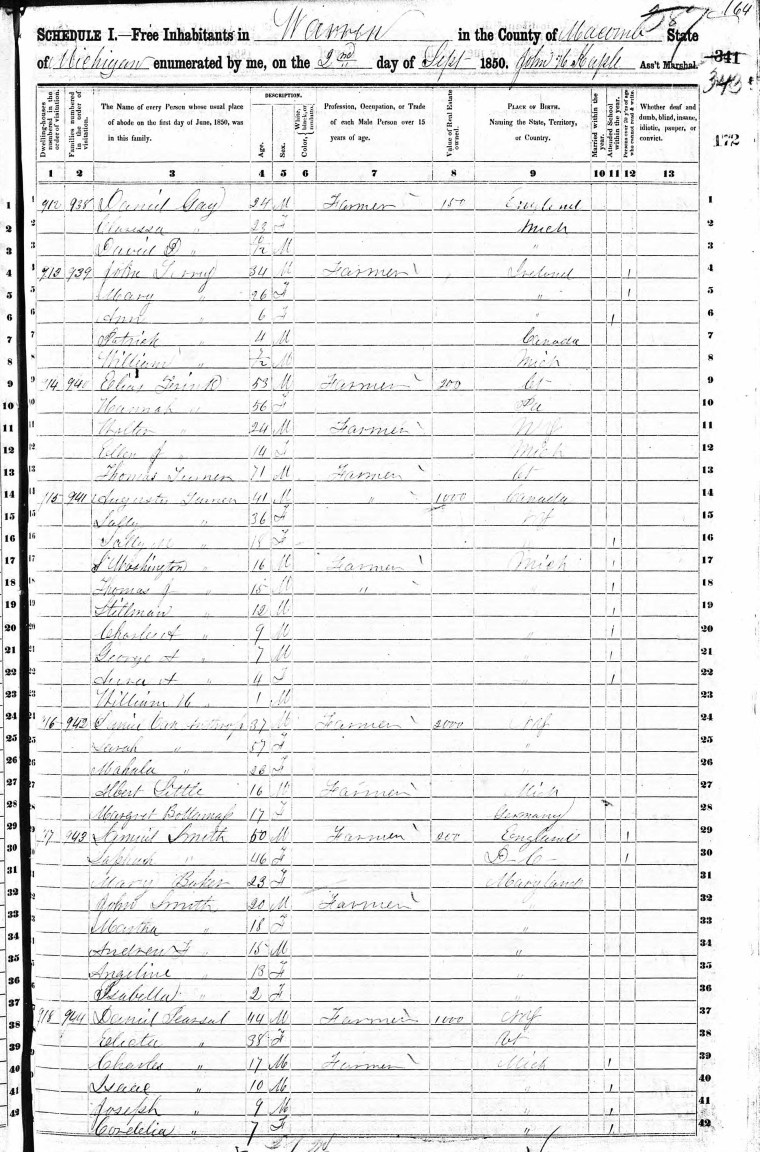 164
587
SCHEDULE I.—Free Inhabitants in Warren in the County of Macomb State
of Michigan enumerated by me, on the 2nd day of Sept 1850. John H Kaple Ass't Marshal.
341
343
172
Dwelling-houses numbered in the order of visitation.
Families numbered in the order of visitation.
The Name of every Person whose usual place of abode on the first day of June, 1850, was in this family.
DESCRIPTION.
Age.
Sex.
Color, White, black, or mulatto.
Profession, Occupation, or Trade of each Male Person over 15 years of age.
Value of Real Estate owned.
PLACE OF BIRTH. Naming the State, Territory, or Country.
Married within the year.
Attended School within the year.
Persons over 20 y'rs of age who cannot read & write.
Whether deaf and dumb, blind, insane, idiotic, pauper, or convict.
1 2 3 4 5 6 7 8 9 10 11 12 13
1 912 938 Daniel Gay 24 M Farmer 150 England 1
2 Clarissa " 23 F Mich 2
3 David D " 10/12 M " 3
4 913 939 John 34 M Farmer Ireland 1 4
5 Mary " 26 F " 1 5
6 Ann " 6 F " 1 6
7 Patrick " 4 M Canada 7
8 William " M Mich 8
9 914 940 Elias 53 M Farmer 200 Ct 9
10 Hannah " 56 F Pa 10
11 Walter " 24 M Farmer NY 11
12 Ellen J " 14 F Mich 12
13 Thomas Turner 71 M Farmer Ct 13
14 915 941 Augustus Turner 41 M " 1000 Canada 14
15 Sally " 36 F NY 15
16 Sally M " 18 F " 1 16
17 Washington " 16 M Farmer Mich 1 17
18 Thomas J " 15 M " 1 18
19 Stillman " 12 M 1 19
20 Charles A " 9 M " 1 20
21 George A " 7 M " 1 21
22 A " 4 F " 1 22
23 William H " 1 M 23
24 916 942 37 M Farmer 2000 NY 24
25 Sarah " 57 F " 25
26 Mahala " 26 F " 26
27 Albert Little 16 M Farmer Mich 27
28 Margret 17 F Germany 28
29 917 943 Smith 50 M Farmer 200 England 1 29
30 " 46 F D-C- 1 30
31 Mary Baker 23 F Maryland 31
32 John Smith 20 M Farmer 32
33 Martha " 18 F " 33
34 Andrew F " 15 M " 34
35 Angeline " 13 F " 35
36 Isabella " 2 F " 36
37 918 944 Daniel Pearsal 44 M Farmer 1000 NY 37
38 Electa " 38 F Vt 38
39 Charles " 17 M Farmer Mich 1 39
40 Isaac " 10 M " 1 40
41 Joseph " 9 M " 1 41
42 Cordelia " 7 F " 1 42